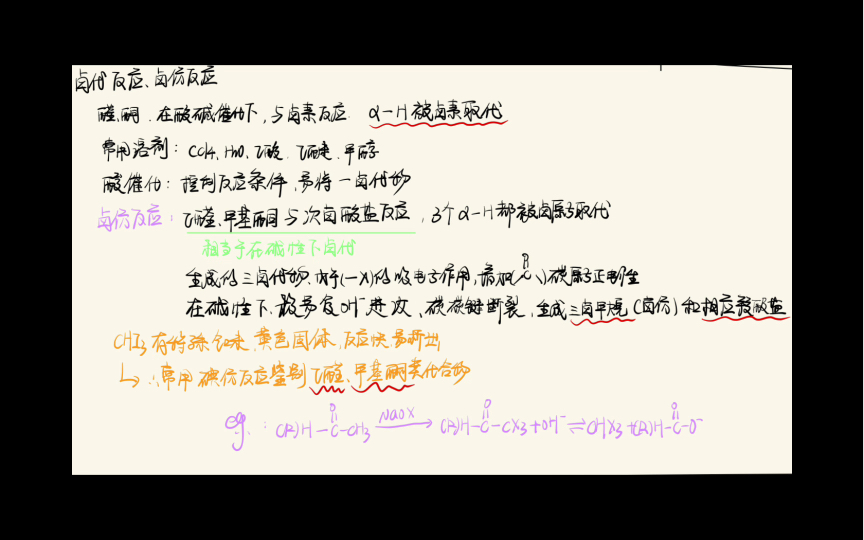 卤代反应、卤仿反应
醛、酮.在酸碱催化下,与卤素反应 α-H被卤素取代
常用溶剂:CCl4、H2O、乙酸、乙醚、甲醇
酸催化:控制反应条件,易得一卤代物
卤仿反应:乙醛、甲基酮与次卤酸盐反应,3个α-H都被卤原子取代
相当于在碱性下卤代
生成的三卤代物,由于(-X)的吸电子作用,增加( C )碳原子正电性
O
在碱性下,较易受OH⁻进攻、碳碳键断裂,生成三卤甲烷(卤仿)和相应羧酸盐
CHI3有特殊气味,黄色固体,反应快易析出
↳∴常用碘仿反应鉴别乙醛、甲基酮类化合物
eg.:(R)H-C-CH3 NaOX→ (R)H-C-CX3+OH⁻⇌CHX3+(R)H-C-O⁻
O O O